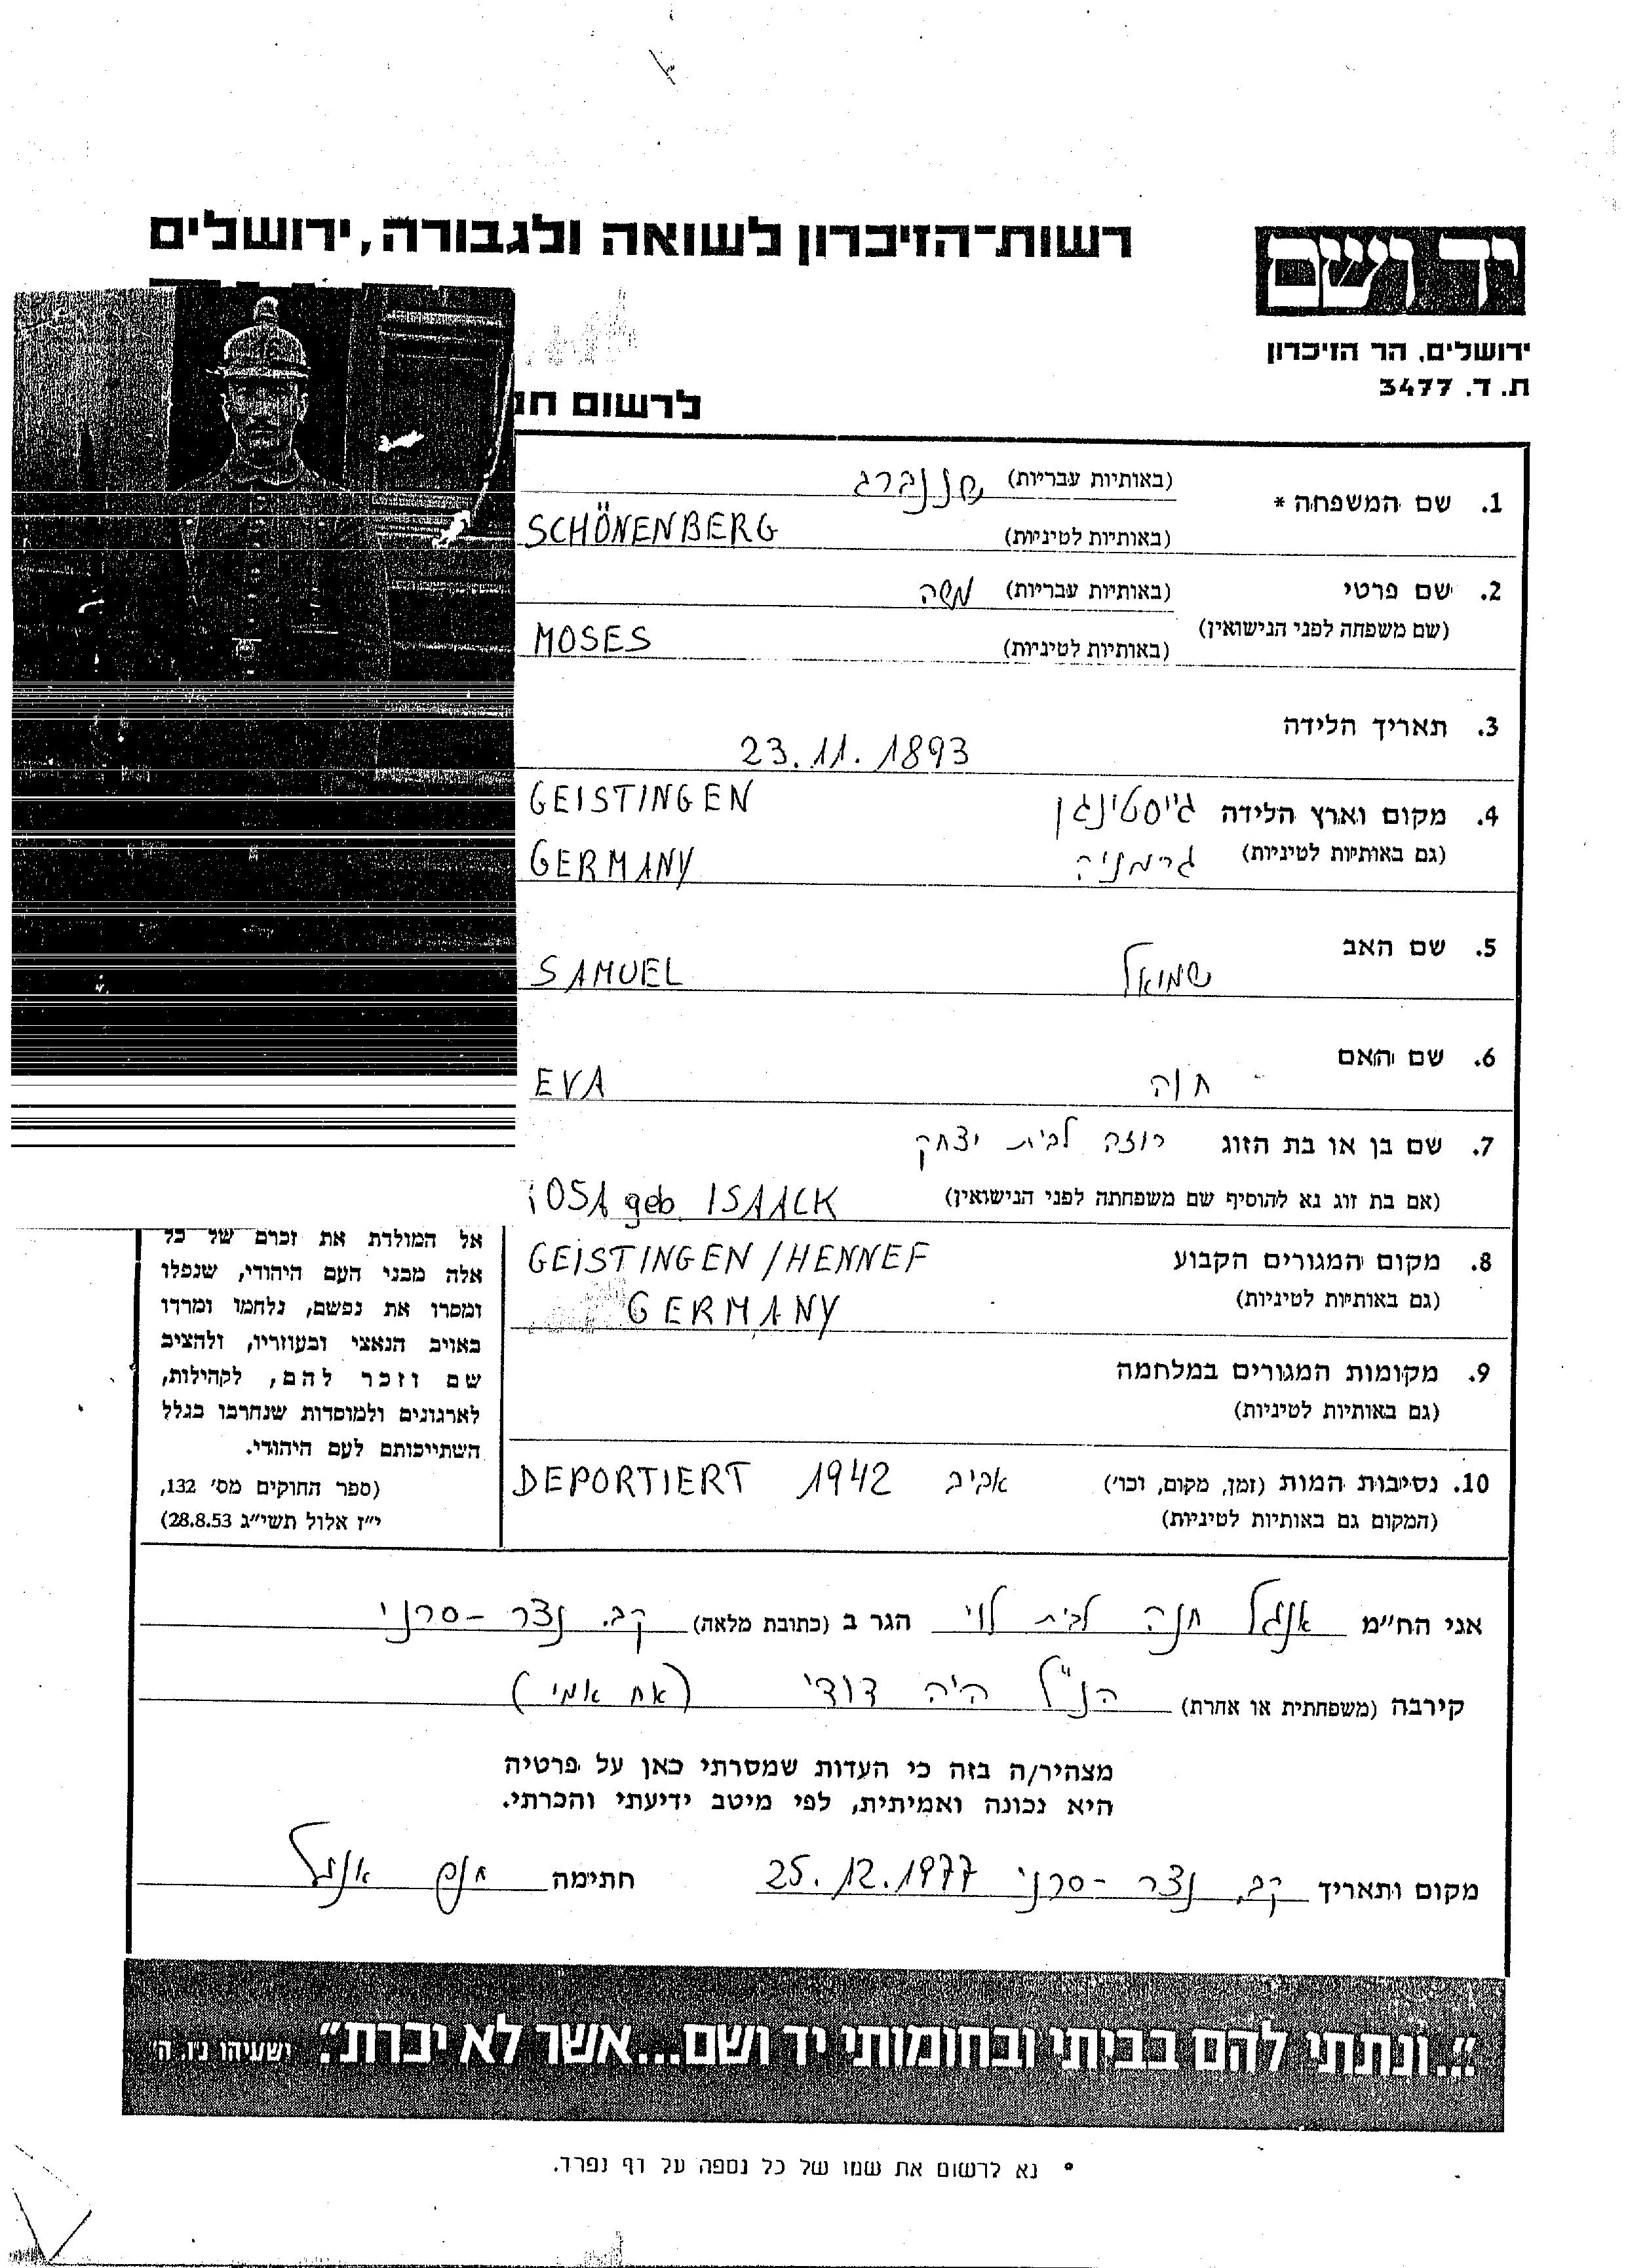 רשות־הזיכרון לשואה ולגבורה, ירושלים
יד ושם
ירושלים, הר הזיכרון
ת. ד. 3477
לרשום
1. שם המשפחה * (באותיות עבריות) שננברג
(באותיות לטיניות) SCHÖNENBERG
2. שם פרטי (באותיות עבריות) משה
(שם משפחה לפני הנישואין) (באותיות לטיניות) MOSES
3. תאריך הלידה 23.11.1893
4. מקום וארץ הלידה גייסטינגן GEISTINGEN
(גם באותיות לטיניות) גרמניה GERMANY
5. שם האב שמואל SAMUEL
6. שם האם חוה EVA
7. שם בן או בת הזוג רוזה לבית יצחק
(אם בת זוג נא להוסיף שם משפחתה לפני הנישואין) geb. ISAACK
8. מקום המגורים הקבוע GEISTINGEN/HENNEF
(גם באותיות לטיניות) GERMANY
9. מקומות המגורים במלחמה
(גם באותיות לטיניות)
10. נסיבות המות (זמן, מקום, וכו') אביב 1942 DEPORTIERT
(המקום גם באותיות לטיניות)
אל המולדת את זכרם של כל
אלה מבני העם היהודי, שנפלו
ומסרו את נפשם, נלחמו ומרדו
באויב הנאצי ובעוזריו, ולהציב
שם וזכר להם, לקהילות,
לארגונים ולמוסדות שנחרבו בגלל
השתייכותם לעם היהודי.
(ספר החוקים מס' 132,
י"ז אלול תשי"ג 28.8.53)
אני הח"מ אנגל חנה לבית לוי הגר ב (כתובת מלאה) קב. נצר-סרני
קירבה (משפחתית או אחרת) הנ"ל היה דודי (אח אמי)
מצהיר/ה בזה כי העדות שמסרתי כאן על פרטיה
היא נכונה ואמיתית, לפי מיטב ידיעתי והכרתי.
מקום ותאריך קב. נצר-סרני 25.12.1977 חתימה חנה אנגל
"...ונתתי להם בביתי ובחומותי יד ושם...אשר לא יכרת". ישעיהו נ"ו, ה'
* נא לרשום את שמו של כל נספה על דף נפרד.